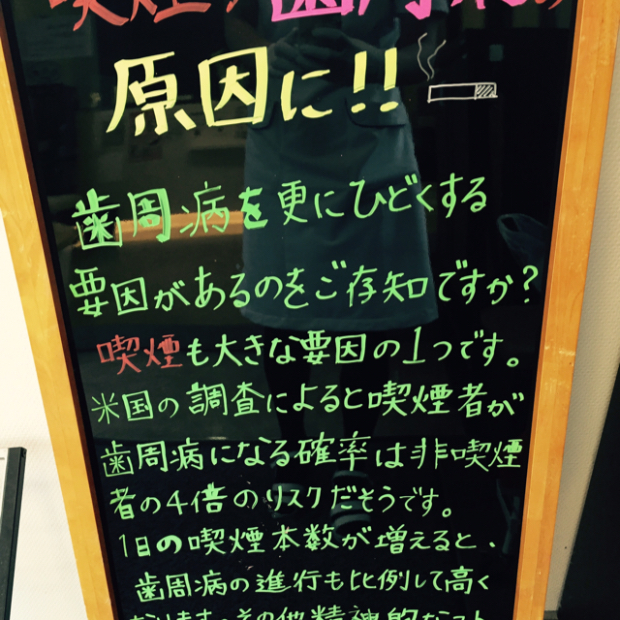 喫煙が歯周病の
原因に!!
歯周病を更にひどくする
要因があるのをご存知ですか?
喫煙も大きな要因の1つです。
米国の調査によると喫煙者が
歯周病になる確率は非喫煙
者の4倍のリスクだそうです。
1日の喫煙本数が増えると、
歯周病の進行も比例して高く
なります。その他精神的なスト